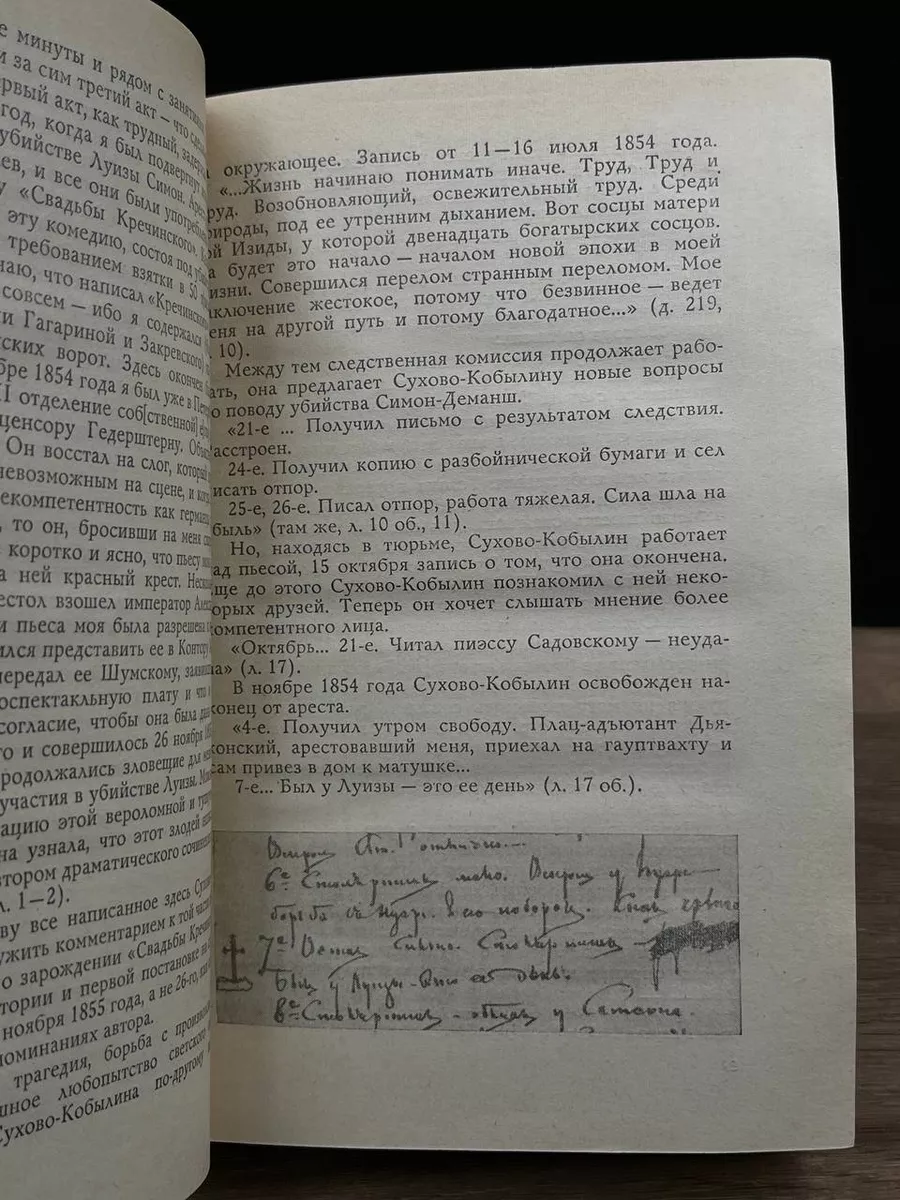 е минуты и рядом с
и за сим третий акт — что
ервый акт, как трудный,
год, когда я был подвергнут
убийстве Луизы Симон.
ев, и все они были
у «Свадьбы Кречинского».
эту комедию, состоя под
требованием взятки в 50
наю, что написал
совсем — ибо я содержался
и Гагариной и Закревского)
ских ворот. Здесь окончен
бре 1854 года я был уже в
I отделение соб[ственной]
ценсору Гедерштерну.
Он восстал на слог, который
невозможным на сцене, и
екомпетентность как
, то он, бросивши на меня
коротко и ясно, что пьесу
а ней красный крест.
естол взошел император
и пьеса моя была разрешена
ился представить ее в Контору
ередал ее Шумскому,
оспектакльную плату и что
согласие, чтобы она была
го и совершилось 26 ноября
родолжались зловещие для
участия в убийстве Луизы.
ацию этой вероломной и
на узнала, что этот злодей
втором драматического
л. 1—2).
ву все написанное здесь
ужить комментарием к той части
о зарождении «Свадьбы
тории и первой постановке
ноября 1855 года, а не 26-го,
поминаниях автора.
трагедия, борьба с
шное любопытство светского
Сухово-Кобылина по-другому
а окружающее. Запись от 11—16 июля 1854 года.
«...Жизнь начинаю понимать иначе. Труд, Труд и
руд. Возобновляющий, освежительный труд. Среди
рироды, под ее утренним дыханием. Вот сосцы матери
ой Изиды, у которой двенадцать богатырских сосцов.
а будет это начало — началом новой эпохи в моей
изни. Совершился перелом странным переломом. Мое
аключение жестокое, потому что безвинное — ведет
еня на другой путь и потому благодатное...» (д. 219,
. 10).
Между тем следственная комиссия продолжает рабо-
ать, она предлагает Сухово-Кобылину новые вопросы
о поводу убийства Симон-Деманш.
«21-е ... Получил письмо с результатом следствия.
асстроен.
24-е. Получил копию с разбойнической бумаги и сел
исать отпор.
25-е, 26-е. Писал отпор, работа тяжелая. Сила шла на
быль» (там же, л. 10 об., 11).
Но, находясь в тюрьме, Сухово-Кобылин работает
ад пьесой, 15 октября запись о том, что она окончена.
ще до этого Сухово-Кобылин познакомил с ней неко-
орых друзей. Теперь он хочет слышать мнение более
омпетентного лица.
«Октябрь... 21-е. Читал пиэссу Садовскому — неуда-
а» (л. 17).
В ноябре 1854 года Сухово-Кобылин освобожден на-
онец от ареста.
«4-е. Получил утром свободу. Плац-адъютант Дья-
онский, арестовавший меня, приехал на гауптвахту и
сам привез в дом к матушке...
7-е... Был у Луизы — это ее день» (л. 17 об.).
6е
7е
Был у Луизы - это ее день.
8е